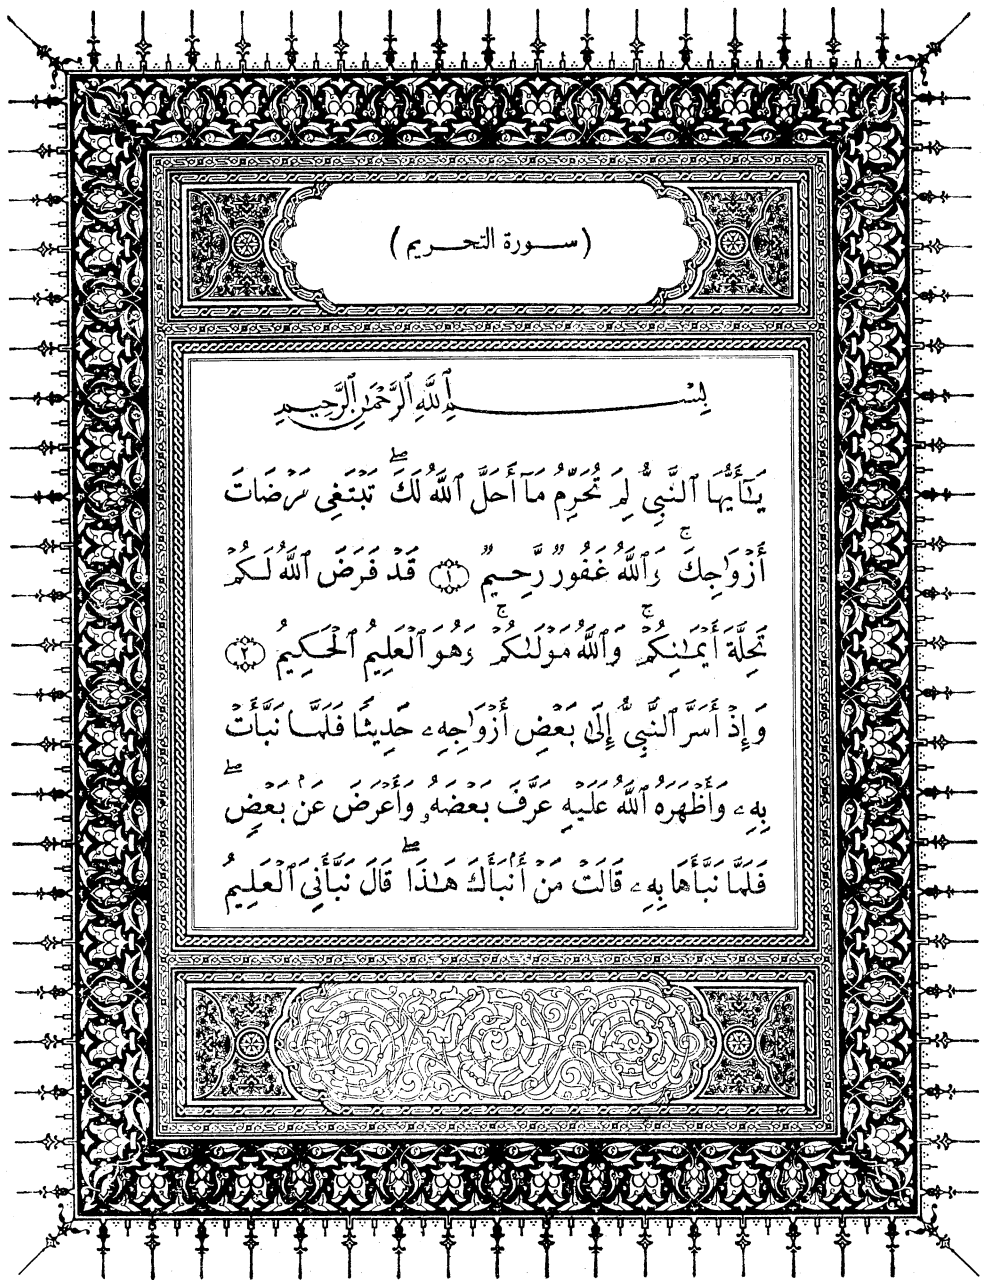 ( سورة التحريم )
بِسْمِ ٱللَّهِ ٱلرَّحْمَٰنِ ٱلرَّحِيمِ
يَٰٓأَيُّهَا ٱلنَّبِىُّ لِمَ تُحَرِّمُ مَآ أَحَلَّ ٱللَّهُ لَكَ ۖ تَبْتَغِى مَرْضَاتَ
أَزْوَٰجِكَ ۚ وَٱللَّهُ غَفُورٌ رَّحِيمٌ ۝١ قَدْ فَرَضَ ٱللَّهُ لَكُمْ
تَحِلَّةَ أَيْمَٰنِكُمْ ۚ وَٱللَّهُ مَوْلَىٰكُمْ ۚ وَهُوَ ٱلْعَلِيمُ ٱلْحَكِيمُ ۝٢
وَإِذْ أَسَرَّ ٱلنَّبِىُّ إِلَىٰ بَعْضِ أَزْوَٰجِهِۦ حَدِيثًا فَلَمَّا نَبَّأَتْ
بِهِۦ وَأَظْهَرَهُ ٱللَّهُ عَلَيْهِ عَرَّفَ بَعْضَهُۥ وَأَعْرَضَ عَنۢ بَعْضٍ ۖ
فَلَمَّا نَبَّأَهَا بِهِۦ قَالَتْ مَنْ أَنۢبَأَكَ هَٰذَا ۖ قَالَ نَبَّأَنِىَ ٱلْعَلِيمُ